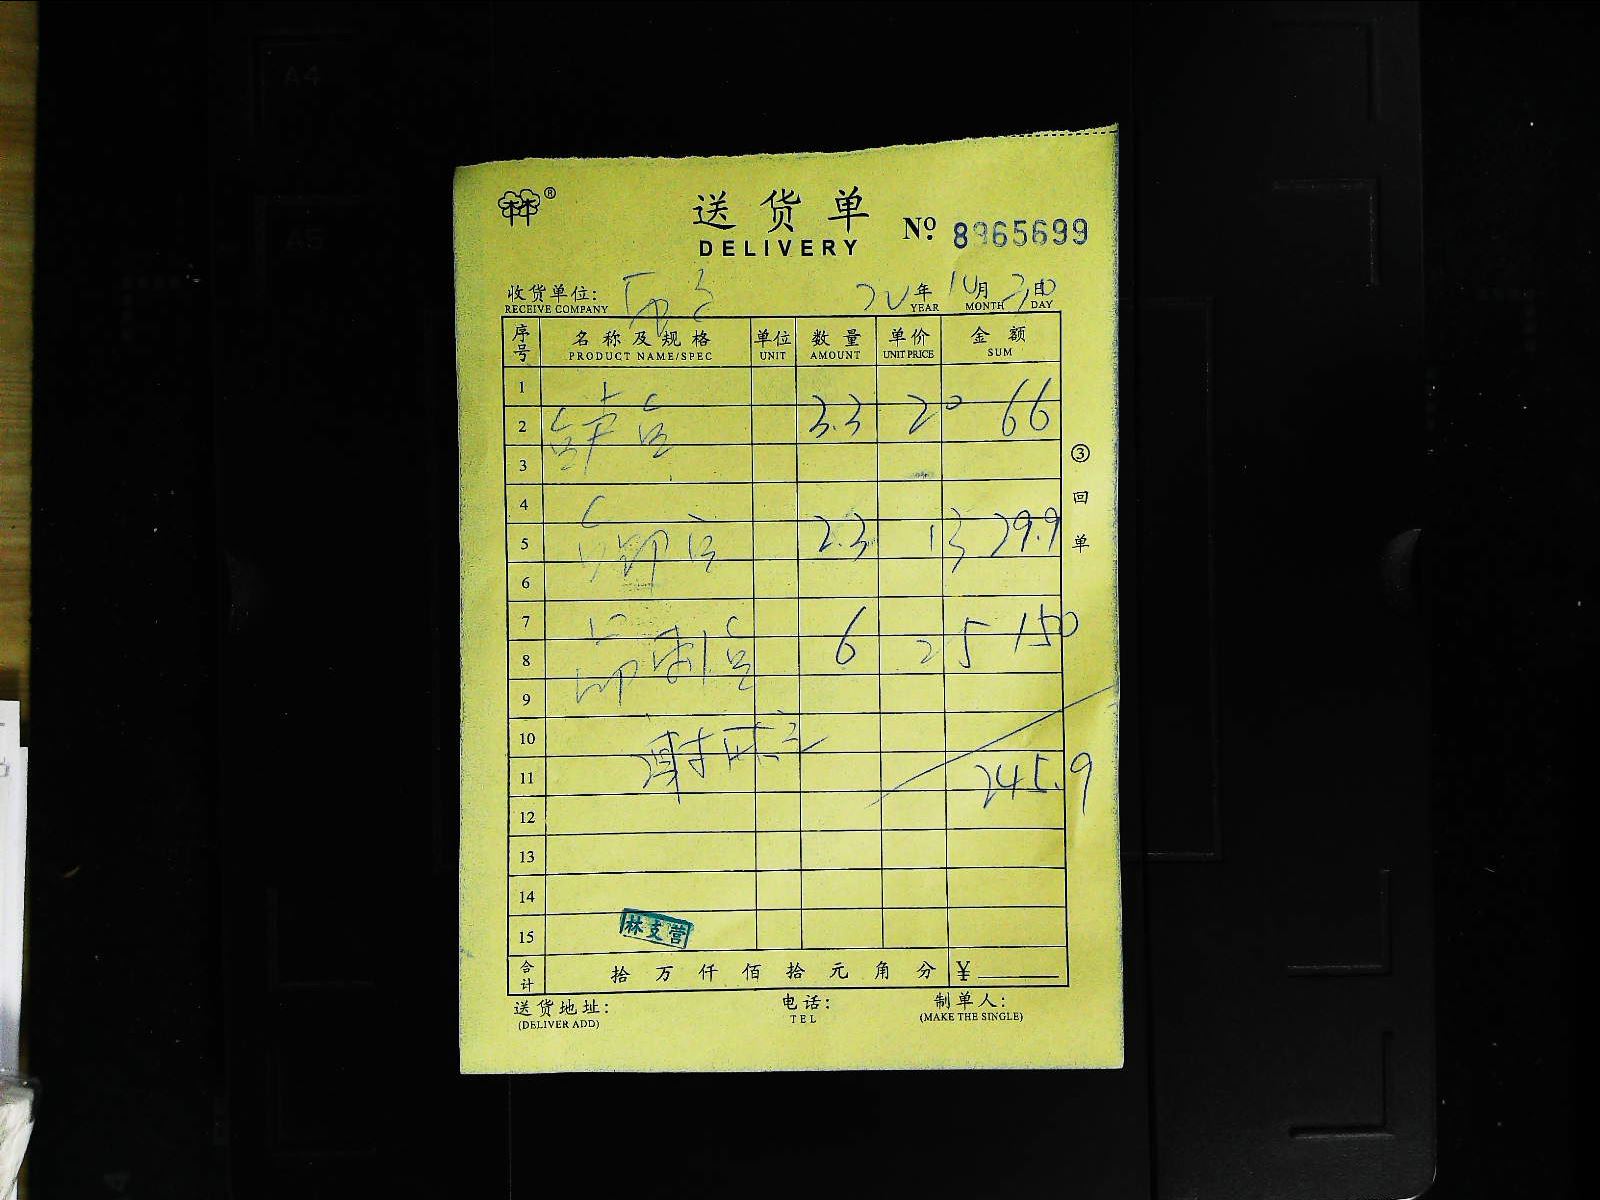 A4
A5
林®
送货单
DELIVERY
№ 8965699
收货单位:
20年10月30日
RECEIVE COMPANY YEAR MONTH DAY
序号 名称及规格 单位 数量 单价 金额
PRODUCT NAME/SPEC UNIT AMOUNT UNIT PRICE SUM
1
2 3.3 20 66
3
4
5 2.3 13 29.9
6
7
8 6 25 150
9
10
11 245.9
12
13
14
15 林支营
合计 拾万仟佰拾元角分 ¥
③回单
送货地址: 电话: 制单人:
(DELIVER ADD) TEL (MAKE THE SINGLE)